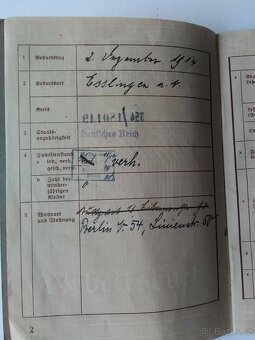 1 Geburtstag 2. Dezember 1914
2 Geburtsort Esslingen a. N.
Kreis
356/180149
3 Staats-
angehörigkeit Deutsches Reich
4 Familienstand
led., verh.,
gesch., verw. verh.
b Zahl der
minder-
jährigen
Kinder 0
5 Wohnort
und Wohnung
Berlin N. 54, Linienstr.
2